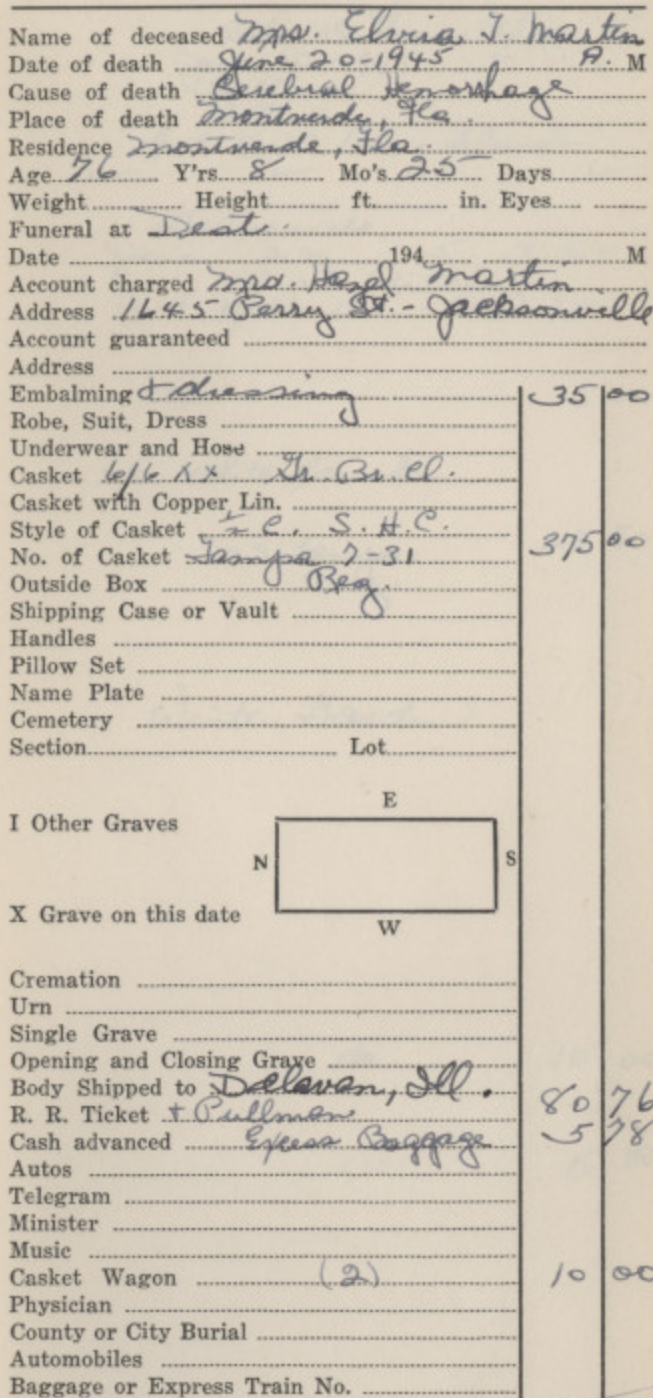 Name of deceased Mrs. Elvira T. Martin
Date of death June 20-1945 A. M
Cause of death Cerebral Hemorrhage
Place of death Montverde, Fla.
Residence Montverde, Fla.
Age 76 Y'rs 8 Mo's 25 Days
Weight Height ft. in. Eyes
Funeral at Dest.
Date 194 M
Account charged Mrs. Hazel Martin
Address 1645 Perry St. - Jacksonville
Account guaranteed
Address
Embalming & dressing 35 00
Robe, Suit, Dress
Underwear and Hose
Casket 6/6 XX Gr. Br. Cl.
Casket with Copper Lin.
Style of Casket C. S. H. C.
No. of Casket Tampa 7-31 375 00
Outside Box Reg.
Shipping Case or Vault
Handles
Pillow Set
Name Plate
Cemetery
Section Lot
E
I Other Graves
N S
X Grave on this date
W
Cremation
Urn
Single Grave
Opening and Closing Grave
Body Shipped to Delavan, Ill.
R. R. Ticket + Pullman 80 76
Cash advanced Excess Baggage 5 78
Autos
Telegram
Minister
Music
Casket Wagon (2) 10 00
Physician
County or City Burial
Automobiles
Baggage or Express Train No.